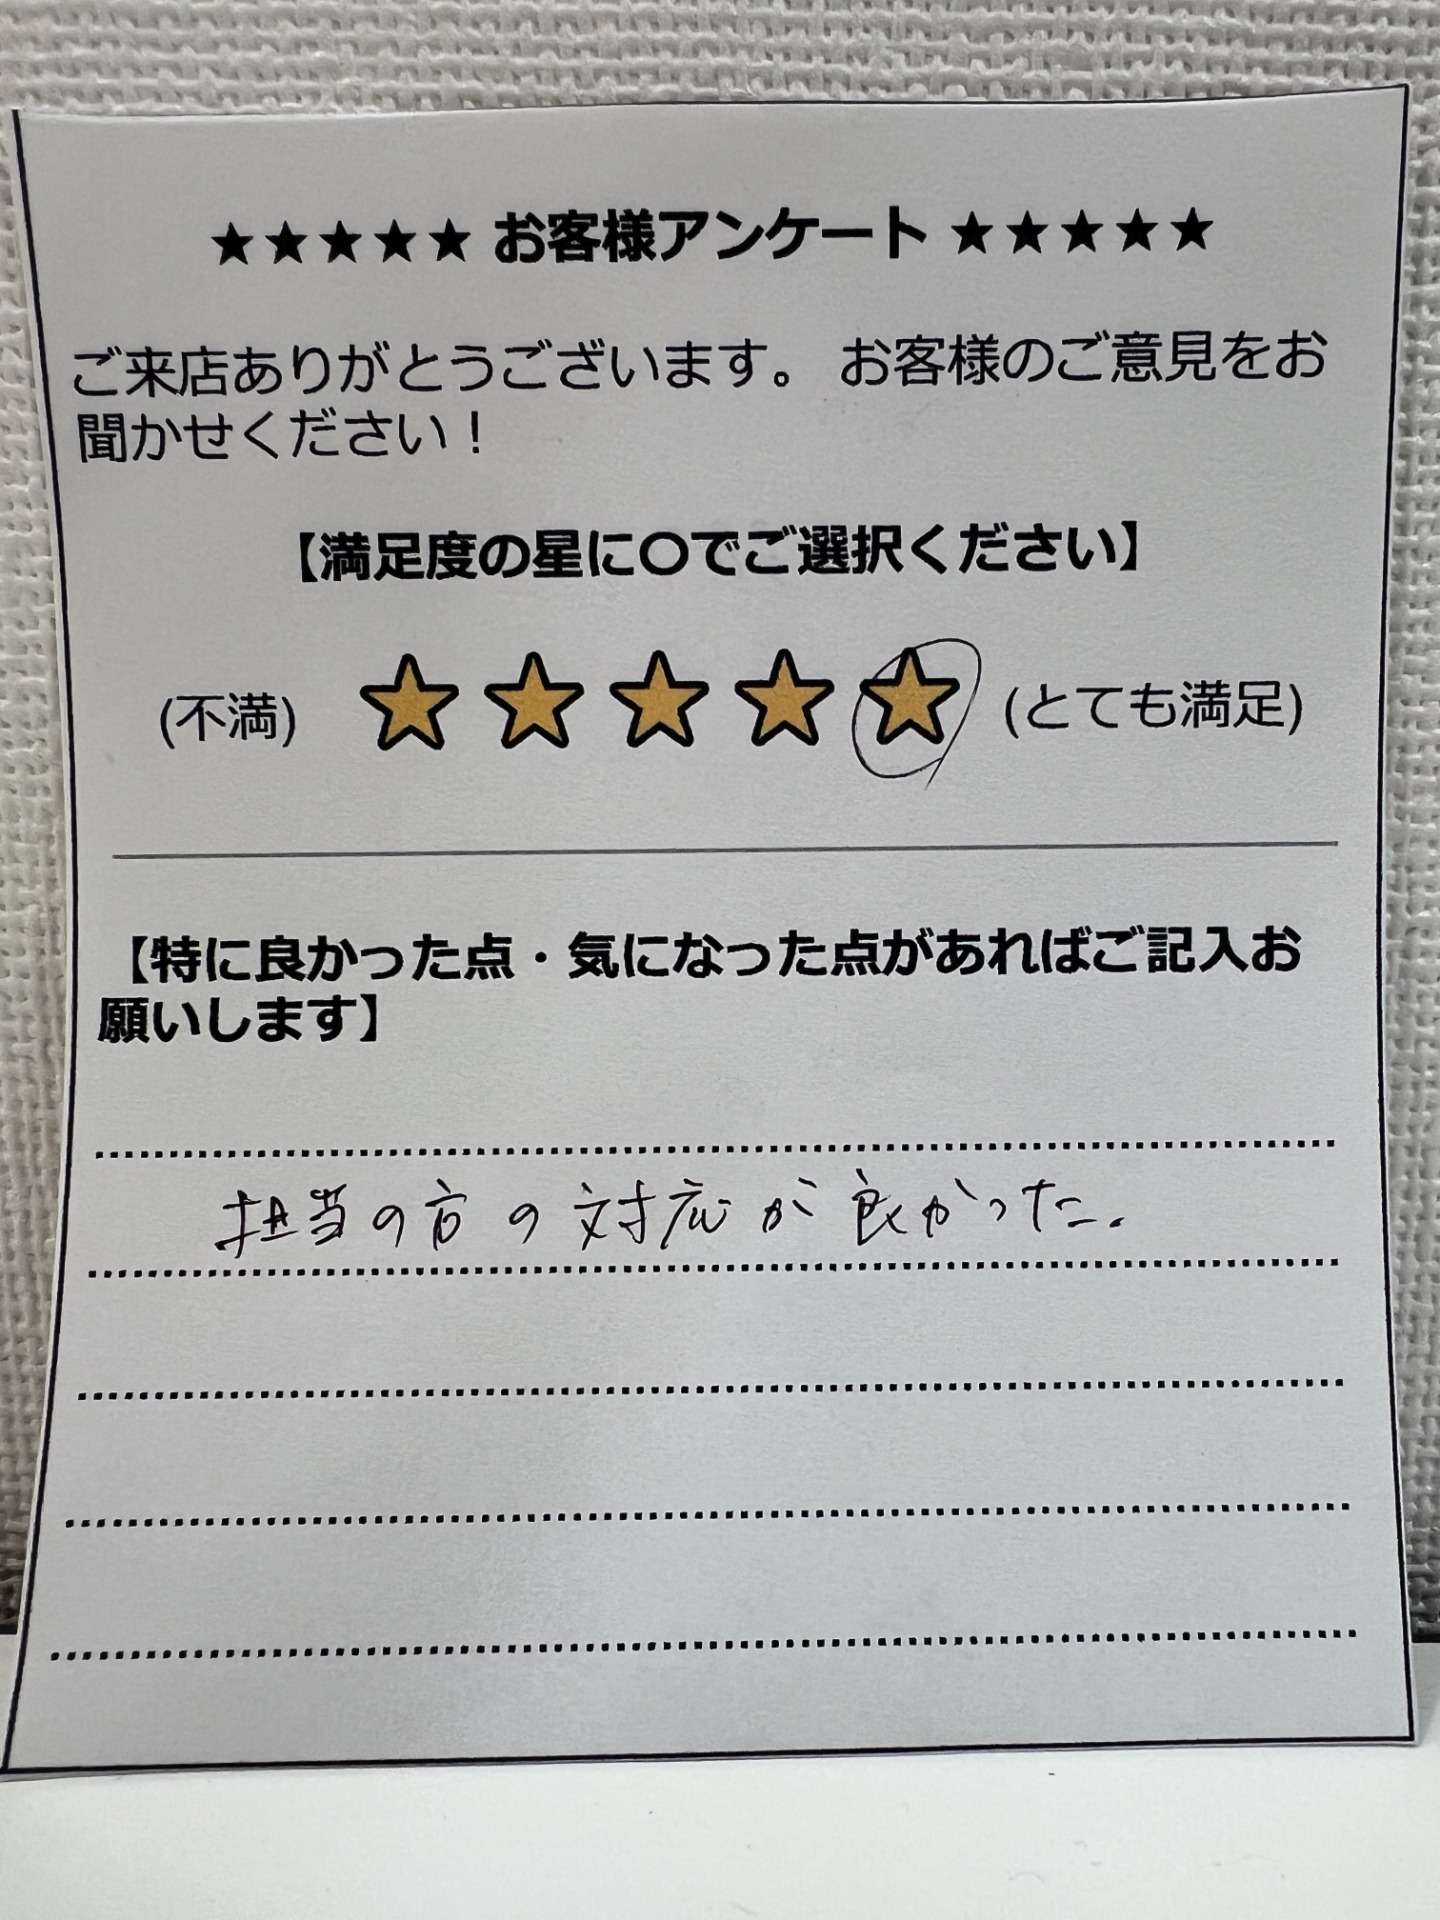 ★★★★★ お客様アンケート ★★★★★
ご来店ありがとうございます。 お客様のご意見をお
聞かせください！
【満足度の星に〇でご選択ください】
(不満) ★★★★★ (とても満足)
【特に良かった点・気になった点があればご記入お
願いします】
担当の方の対応が良かった。